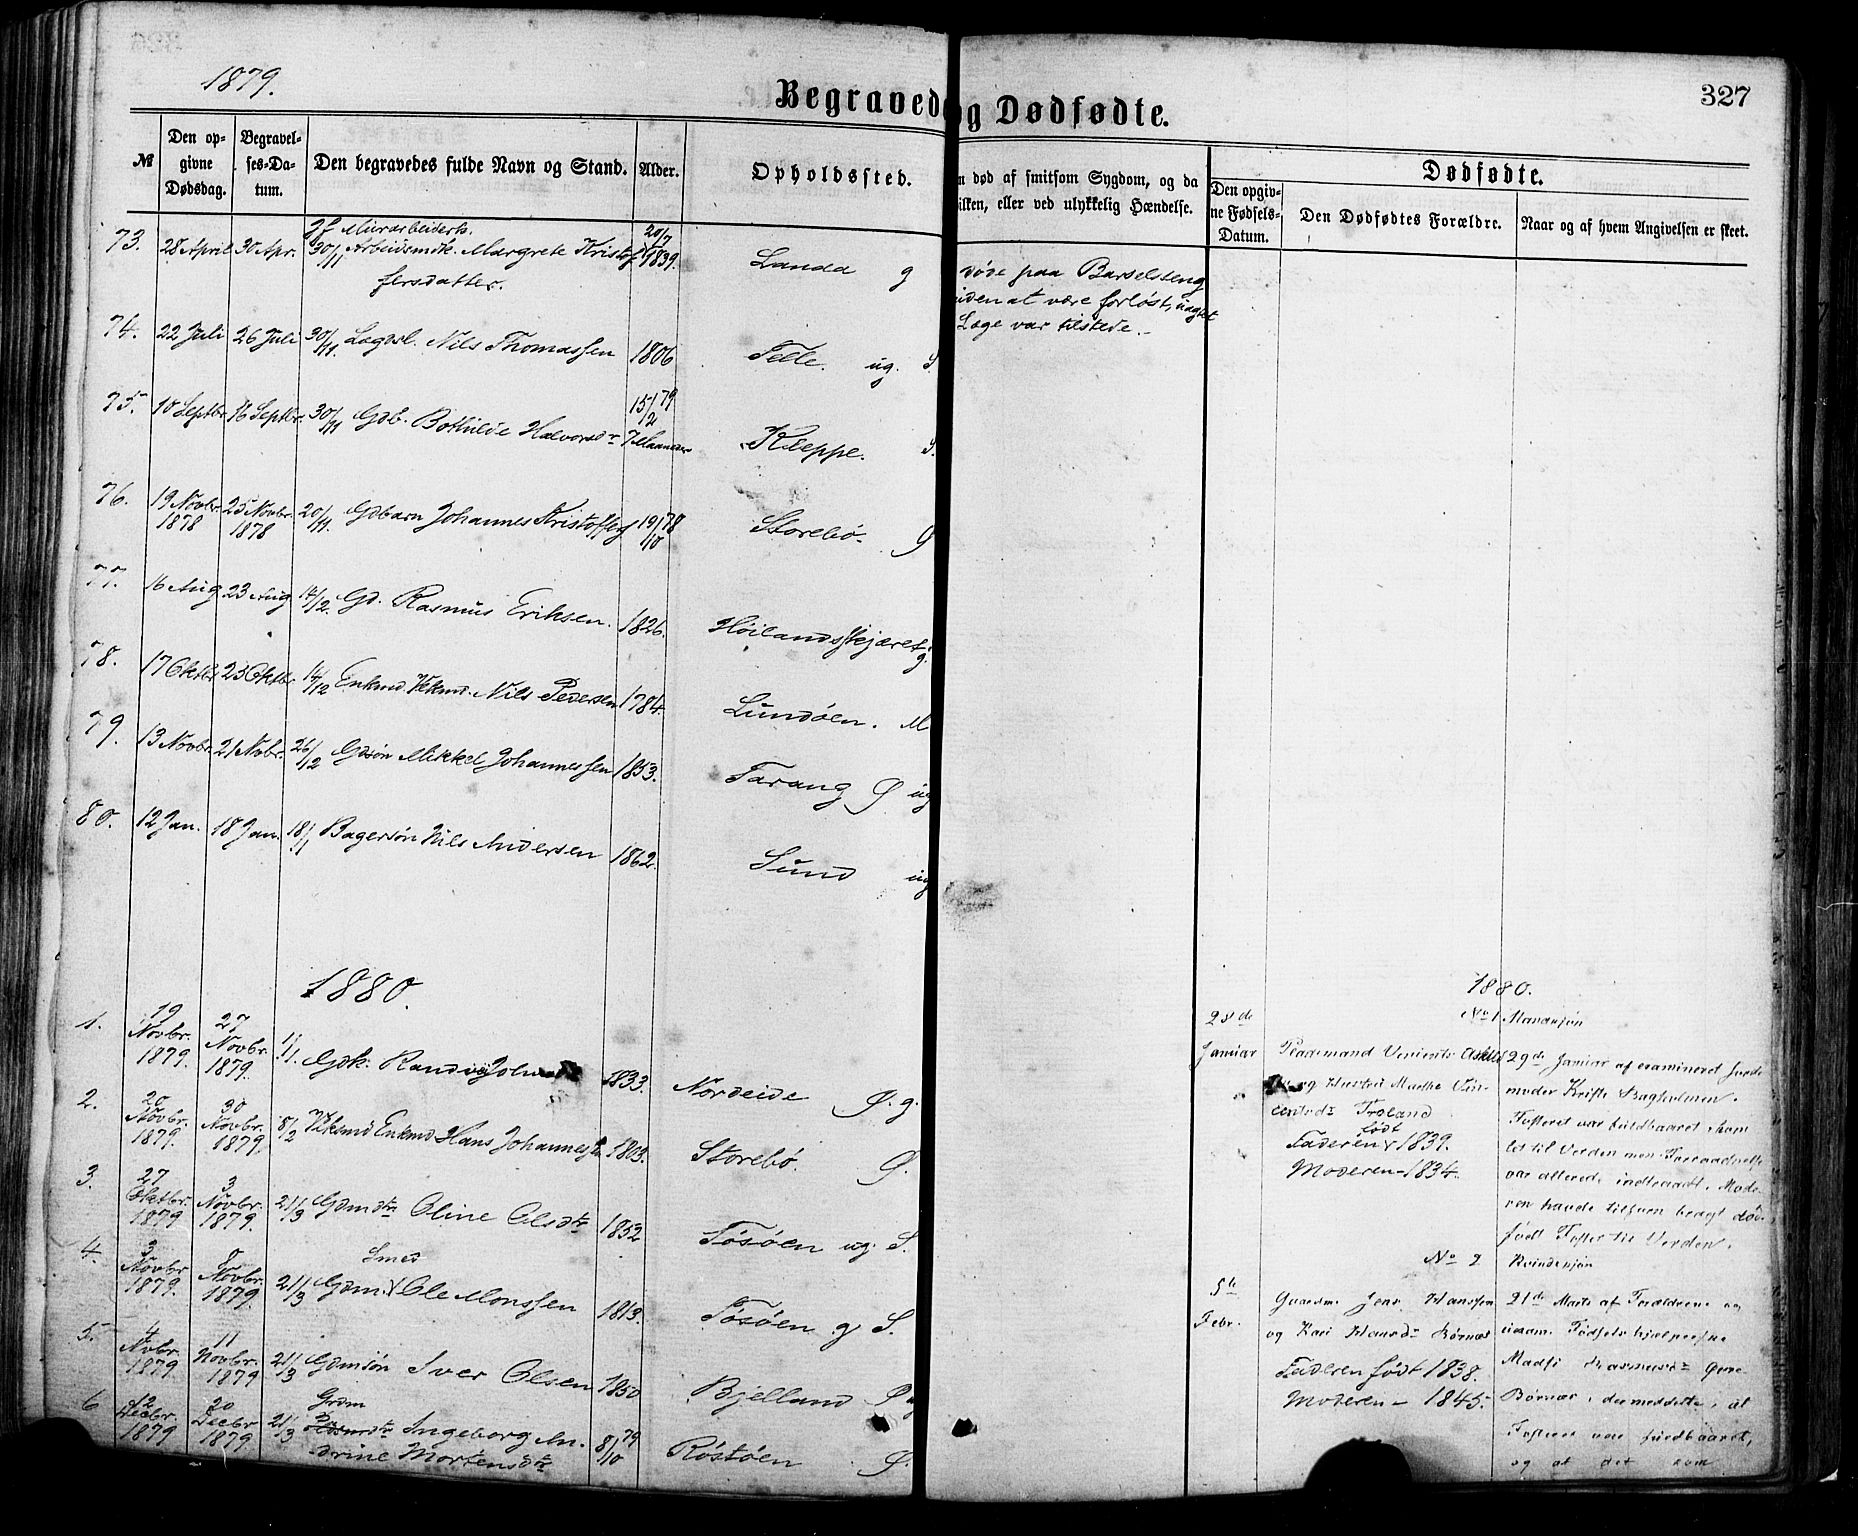 1879.
Begravede
og Dødfødte.
327
№
Den op-
givne
Dødsdag.
Begravel-
ses-Da-
tum.
Den begravedes fulde Navn og Stand.
Alder.
Opholdssted.
død af smitsom Sygdom, og da
hvilken, eller ved ulykkelig Hændelse.
Dødfødte.
Den opgiv-
ne Fødsels-
Datum.
Den Dødfødtes Forældre.
Naar og af hvem Angivelsen er skeet.
73. 28 April 30 Apr. 30/11 Murarbeiderk.
Arbeidsmdk. Margrete Kristof
fersdatter. 20/7 1839. Landa g
døde paa Barselseng
uden at være forløst, uagtet
Læge var tilstede.
74. 22 Juli 26 Juli 30/11. Lægdsl. Nils Thomassen 1806 Telle. ug. S.
75. 10 Septbr. 16 Septbr. 30/11 Gdb. Bothilde Halvorsdr 15/2 79
7 Maaneder Kleppe. S.
76. 19 Novbr. 1878 25 Novbr. 1878 20/11. Gdbarn Johannes Kristoffers 19/10 78 Storebø. Ø
77. 16 Aug 23 Aug 14/12. Gd. Rasmus Eriksen. 1826. Høilandsskjæret g.
78. 17 Oktbr 25 Oktbr 14/12 Enkmd Vkmd. Nils Pedersen 1784. Lundøen. M
79. 13 Novbr. 21 Novbr. 26/12 Gdsøn Mikkel Johannessen 1853. Tarang Ø ug
80. 12 Jan. 18 Jan. 18/1 Bagersøn Nils Andersen 1862. Sund ug
1880.
1. 19 Novbr. 1879. 27 Novbr. 1879. 1/11. Gdk. Randi 1833. Nordeide Ø. g.
2. 20 Novbr. 1879. 30 Novbr. 1879. 8/2 Vksmd Enkmd Hans Johannessen 1803. Storebø. Ø.
3. 27 Oktbr. 1879 3 Novbr. 1879. 21/3 Gdmdtr Oline Olsdtr 1852 Tøsøen ug. S.
4. 3 Novbr 1879. 8 Novbr. 1879. 21/3 Smed
Gdm. Ole Monssen 1813. Tøsøen g S.
5. 4 Nvbr. 1879 11 Novbr. 1879 21/3 Gdmsøn Iver Olsen 1850 Bjelland Ø ug
6 12 Decbr. 1879 20 Decbr 1879 21/3 Grdm
Ingeborg An-
drine Mortensdtr 8/10 79 Røstøen Ø.
1880.
No 1 Mandkjøn
28de
Januar
og Hustru Marthe Vin-
centsdr Troland
Faderen født 1839.
Moderen - 1834.
29de Januar af examineret Jorde
moder Kirsti Bagholmen.
Fosteret var fuldbaaret kom
let til Verden men Forraadnelse
var allerede indtraadt. Mode-
ren havde tilforn bragt død-
født Foster til Verden.
No 2 Kvindekjøn
5te
Febr.
Gaardm. Jens Hanssen
og Kari Hansdr Børnæs
Faderen født 1838.
Moderen - 1845.
21de Marts af Forældrene og
uexam. Fødselshjælperske
Madsi Rasmusdr
Børnæs, der meddelte, at
Fosteret var fuldbaaret,
og at det kom